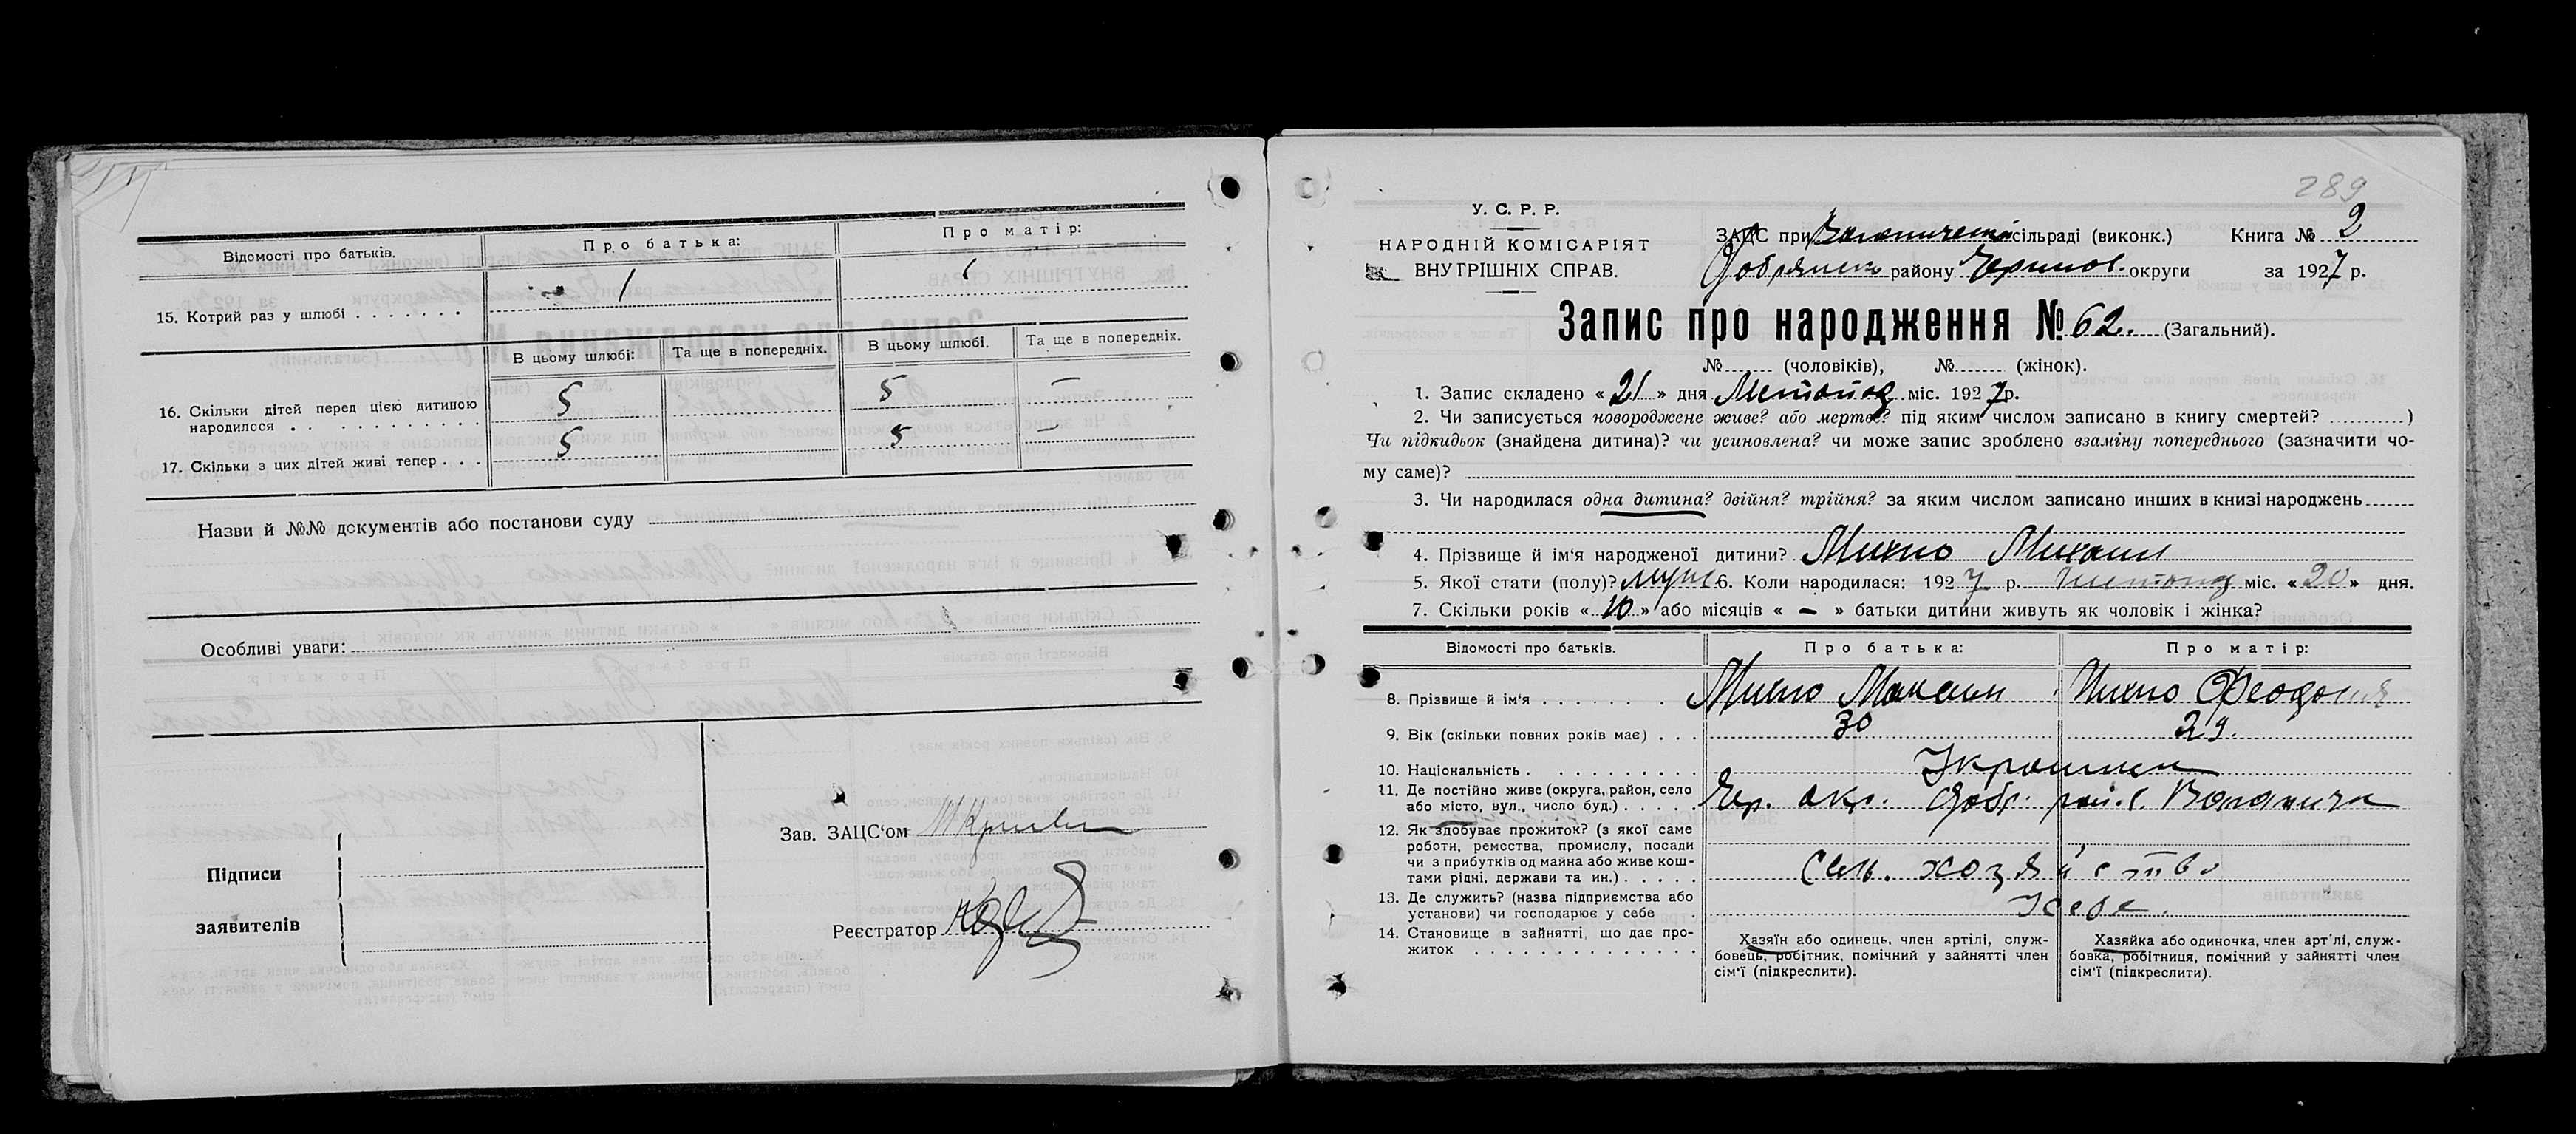 Відомості про батьків. Про батька: Про матір:
15. Котрий раз у шлюбі . . . . . . . 1 1
В цьому шлюбі: Та ще в попередніх. В цьому шлюбі. Та ще в попередніх.
16. Скільки дітей перед цією дитиною 5 5 —
народилося . . . . . . . . . . .
17. Скільки з цих дітей живі тепер . . . 5 5 —
Назви й №№ документів або постанови суду
Особливі уваги:
Підписи
заявителів
Зав. ЗАЦС'ом
Реєстратор
289
У. С. Р. Р.
НАРОДНІЙ КОМІСАРІЯТ
ВНУТРІШНІХ СПРАВ.
ЗАЦС при сільраді (виконк.) Книга № 2
Добрянск району Чернигов. округи за 1927 р.
Запис про народження № 62. (Загальний).
№ (чоловіків), № (жінок).
1. Запис складено « 21 » дня міс. 1927 р.
2. Чи записується новороджене живе? або мертве? під яким числом записано в книгу смертей? )
Чи підкидьок (знайдена дитина)? чи усиновлена? чи може запис зроблено взаміну попереднього (зазначити чо-
му саме)?
3. Чи народилася одна дитина? двійня? трійня? за яким числом записано инших в книзі народжень
4. Прізвище й ім'я народженої дитини? Михно Михаил
5. Якої стати (полу)? 6. Коли народилася: 1927 р. міс. « 20 » дня.
7. Скільки років « 10 » або місяців « — » батьки дитини живуть як чоловік і жінка?
Відомості про батьків. Про батька: Про матір:
8. Прізвище й ім'я . . . . . . . Михно Максим Михно Феодосия
9. Вік (скільки повних років має) . . . 30 29.
10. Національність . . . . . . . . . .
11. Де постійно живе (округа, район, село Чер. окр. Добр. рай. с.
або місто, вул., число буд.) . . . . .
12. Як здобуває прожиток? (з якої саме
роботи, ремества, промислу, посади
чи з прибутків од майна або живе кош-
тами рідні, держави та ин.) . . . . . Сель. хозяйство
13. Де служить? (назва підприємства або
установи) чи господарює у себе . У себе.
14. Становище в зайнятті, що дає про-
житок . . . . . . . . . . . . . .
Хазяїн або одинець, член артілі, служ-
бовець, робітник, помічний у зайнятті член
сім'ї (підкреслити).
Хазяйка або одиночка, член артілі, служ-
бовка, робітниця, помічний у зайнятті член
сім'ї (підкреслити).